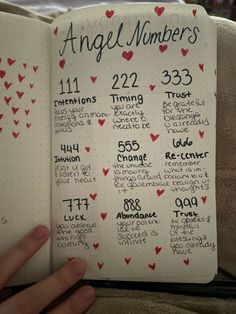 Angel Numbers
111
Intentions
focus your
energy on mani-
festations &
222
Timing
you are
exactly
where u
need to be
333
Trust
be grateful
for the
blessings
u already
have
444
Intuition
listen to
your heart
555
Change
the universe
is moving
things around
for u embrace
it
666
Re-center
remember
what is im-
portant in
ur life &
regain
thoughts
777
Luck
you deserve
the good
things
coming
888
Abundance
your poten-
tial to
succeed is
infinite
999
Trust
be grateful &
mindful
of the
blessings
you already
have